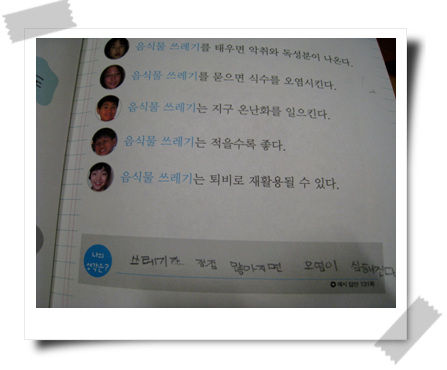 음식물 쓰레기를 태우면 악취와 독성분이 나온다.
음식물 쓰레기를 묻으면 식수를 오염시킨다.
음식물 쓰레기는 지구 온난화를 일으킨다.
음식물 쓰레기는 적을수록 좋다.
음식물 쓰레기는 퇴비로 재활용될 수 있다.
나의
생각은?
쓰레기가 점점 많아지면 오염이 심해진다
예시 답안